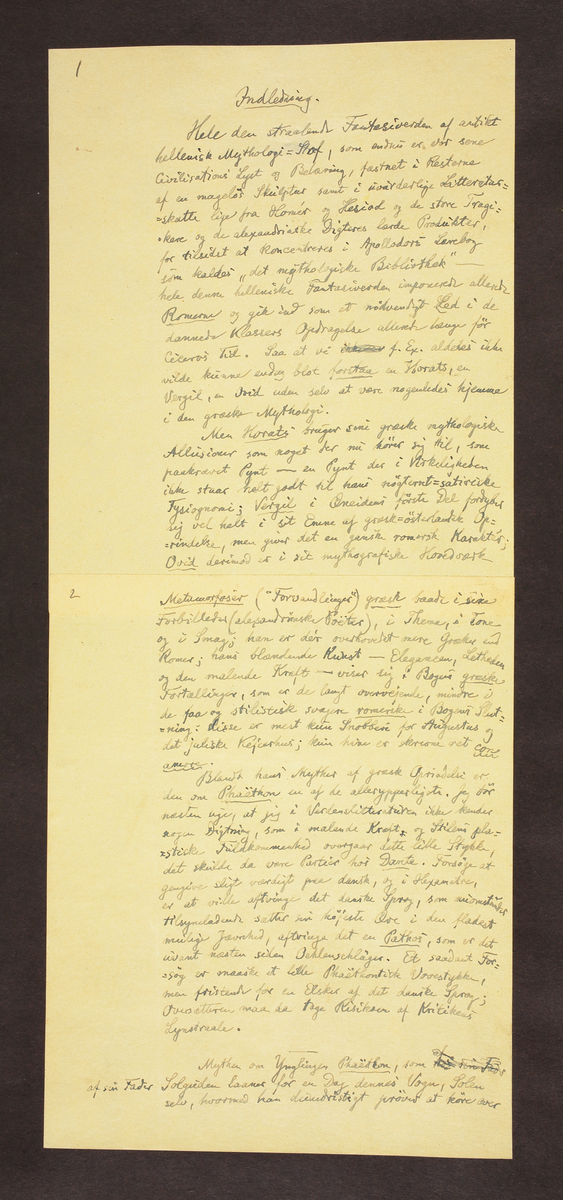 1
Indledning.
Hele den straalende Fantasiverden af antikt
hellenisk Mythologi=Stof, som endnu er vor sene
Civilisations Lyst og Belæring, fastnet i Resterne
af en mageløs Skulptur samt i uvurderlige Litteratur=
=skatte lige fra Homér og Hesiod og de store Tragi=
=kere og de alexandrinske Digteres lærde Produkter,
for tilsidst at koncentreres i Apollodors Lærebog
som kaldes „det mythologiske Bibliothek" —
hele denne helleniske Fantasiverden imponerede allerede
Romerne og gik ind som et nödvendigt Led i de
dannede Klassers Opdragelse allerede længe før
Ciceros Tid. Saa at vi f. Ex. aldeles ikke
vilde kunne endog blot forstaa en Horats, en
Vergil, en Ovid uden selv at være nogenledes hjemme
i den græske Mythologi.
Men Horats bruger sine græske mythologiske
Allusioner som noget der nu hörer sig til, som
paakrævet Pynt — en Pynt der i Virkeligheden
ikke staar helt godt til hans nögternt=satiriske
Fysiognomi; Vergil i Æneidens første Del fordyber
sig vel helt i sit Emne af græsk=österlandsk Op=
=rindelse, men giver det en ganske romersk Karaktér;
Ovid derimod er i sit mythografiske Hovedværk
2
Metamorfoser ("Forvandlinger") græsk baade i sine
Forbilleder (alexandrinske Poëter), i Thema, i Tone
og i Smag; han er dér overhovedet mere Græker end
Romer; hans blændende Kunst — Elegancen, Letheden
og den malende Kraft — viser sig i Bogens græske
Fortællinger, som er de langt overvejende, mindre i
de faa og stilistisk svagere romerske i Bogens Slut=
=ning: disse er mest kun Snobberi for Augustus og
det juliske Kejserhus; kun hine er skrevne ret con
amore.
Blandt hans Myther af græsk Oprindelse er
den om Phaëthon en af de allerypperligste. Jeg bör
næsten sige, at jeg i Verdenslitteraturen ikke kender
nogen Digtning, som i malende Kraft og Stilens pla=
=stiske Fuldkommenhed overgaar dette lille Stykke,
det skulde da være Partier hos Dante. Forsöge at
gengive sligt værdigt paa dansk, og i Hexametre,
er at ville aftvinge det danske Sprog, som nuomstunder
tilsyneladende sætter sin höjeste Ære i den fladest
mulige Jævnhed, aftvinge det en Pathos, som er det
uvant næsten siden Oehlenschläger. Et saadant For=
=sög er maaske et lille Phaëthontisk Vovestykke,
men fristende for en Elsker af det danske Sprog;
Oversætteren maa da tage Risikoen af Kritikens
Lynstraale.
Mythen om Ynglingen Phaëthon, som
af sin Fader Solguden laaner for en Dag dennes Vogn, Solen
selv, hvormed han dumdristigt prøver at köre over